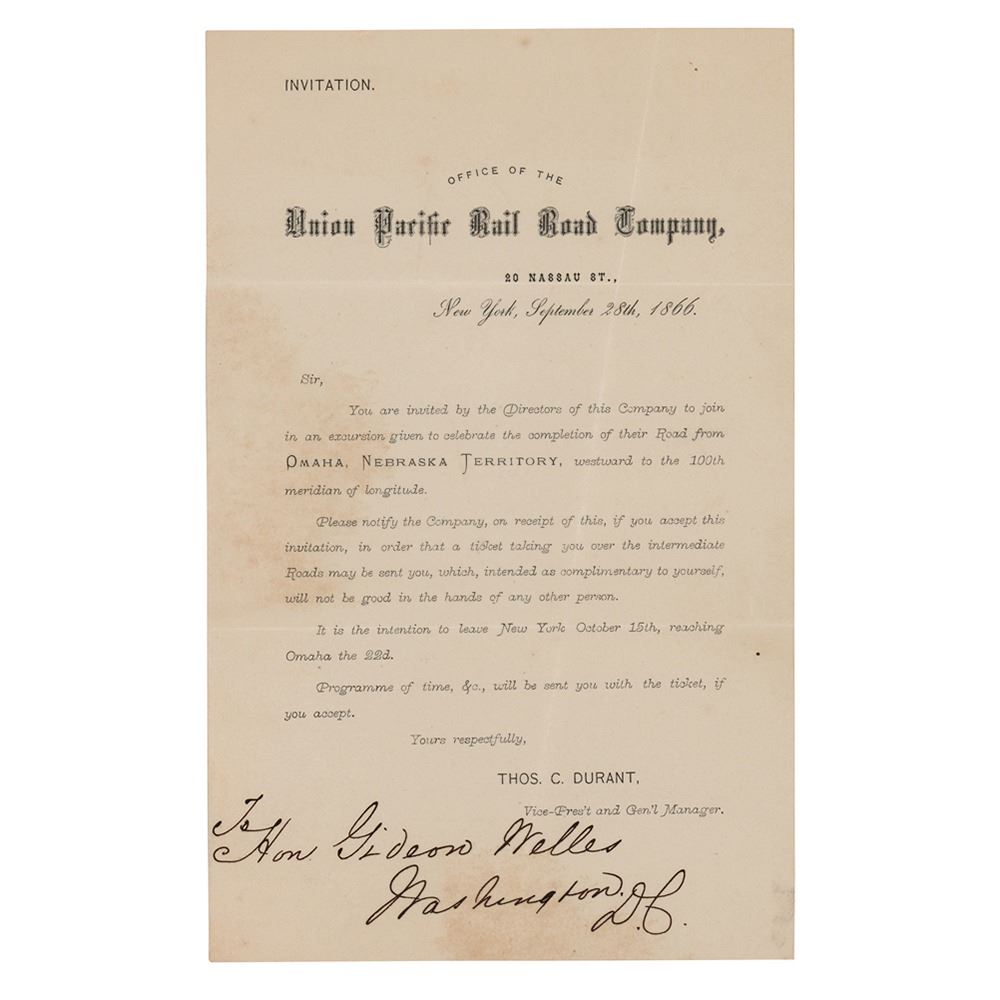 INVITATION.
OFFICE OF THE
Union Pacific Rail Road Company,
20 NASSAU ST.,
New York, September 28th, 1866.
Sir,
You are invited by the Directors of this Company to join
in an excursion given to celebrate the completion of their Road from
OMAHA, NEBRASKA TERRITORY, westward to the 100th
meridian of longitude.
Please notify the Company, on receipt of this, if you accept this
invitation, in order that a ticket taking you over the intermediate
Roads may be sent you, which, intended as complimentary to yourself,
will not be good in the hands of any other person.
It is the intention to leave New York October 15th, reaching
Omaha the 22d.
Programme of time, &c., will be sent you with the ticket, if
you accept.
Yours respectfully,
THOS. C. DURANT,
Vice-Pres't and Gen'l Manager.
To
Hon. Gideon Welles
Washington. D.C.